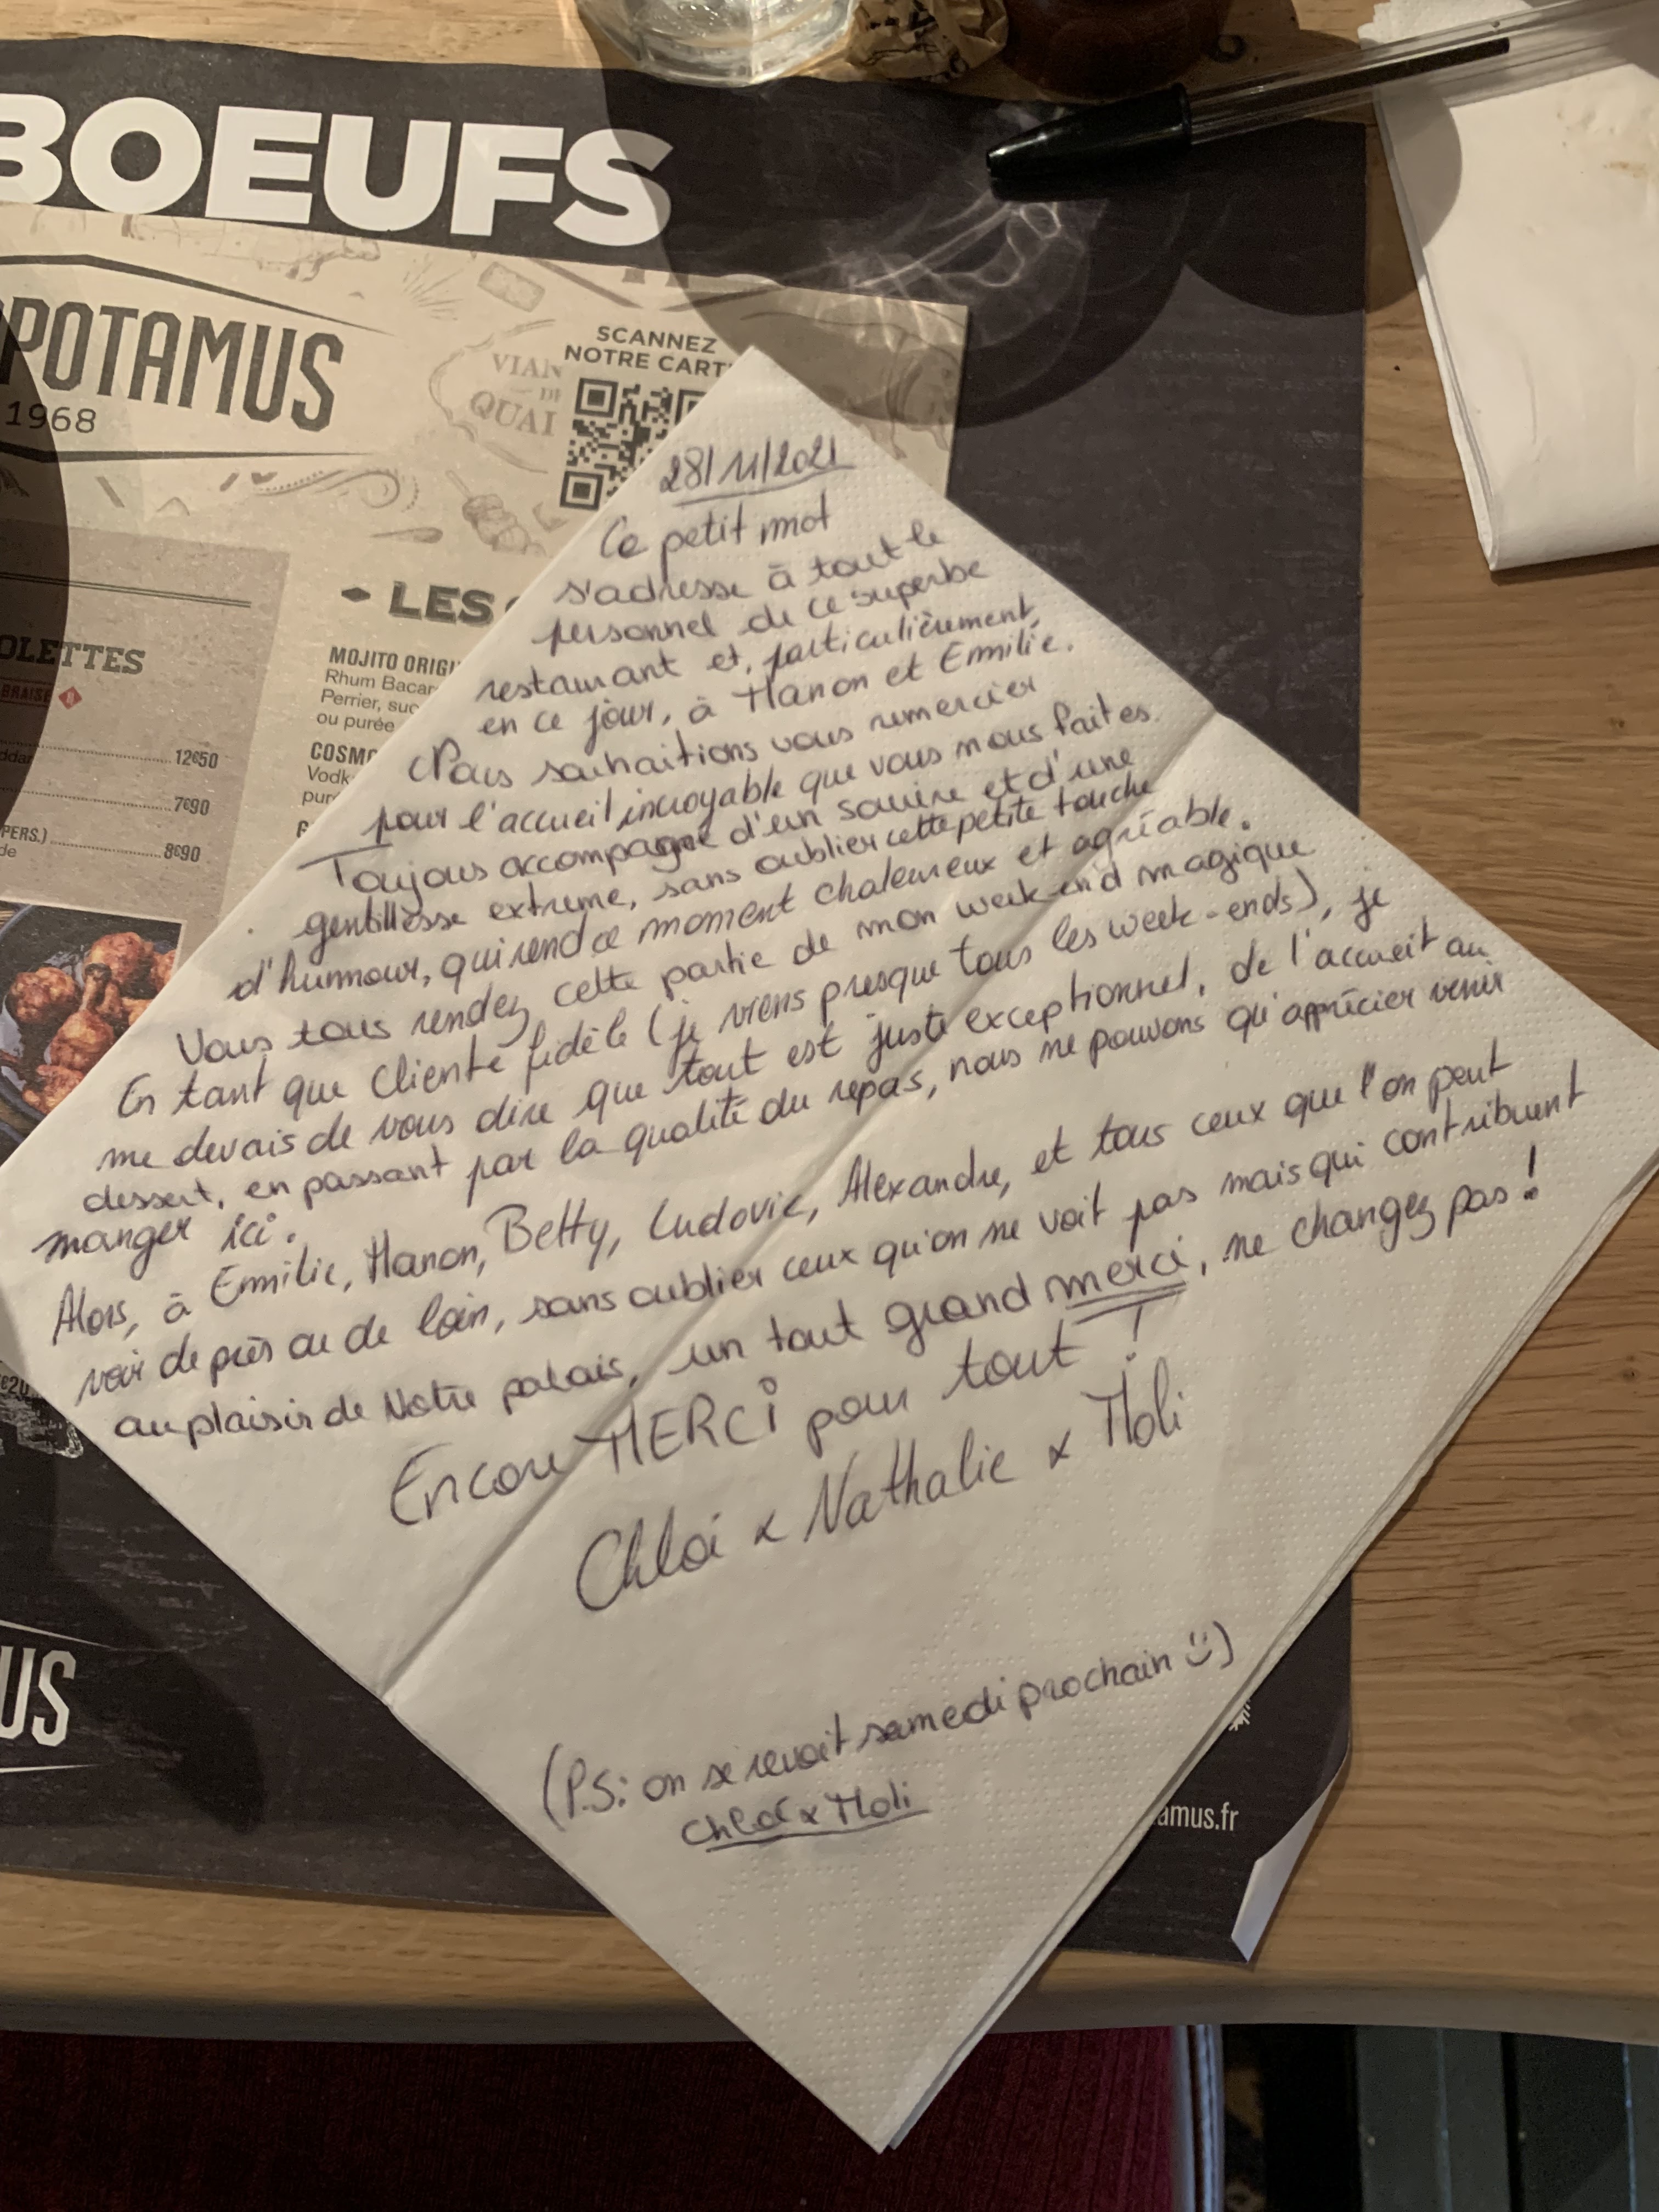 BOEUFS
POTAMUS
1968
SCANNEZ
NOTRE CART
VIAN
QUAI
LES
OLETTES
BRAISE
MOJITO ORIGI
Rhum Bacar
Perrier, suc
ou purée
COSMO
Vodk
pur
ddar 12€50
7€90
PERS.)
de 8€90
28/11/2021
Ce petit mot
s'adresse à tout le
personnel de ce superbe
restaurant et, particulièrement,
en ce jour, à Manon et Emilie.
Nous souhaitions vous remercier
pour l'accueil incroyable que vous nous faites.
Toujours accompagné d'un sourire et d'une
gentillesse extreme, sans oublier cette petite touche
d'humour, qui rend ce moment chaleureux et agréable.
Vous tous rendez cette partie de mon week-end magique
En tant que Cliente fidèle (je viens presque tous les week-ends), je
me devais de vous dire que tout est juste exceptionnel, de l'accueil au
dessert, en passant par la qualité du repas, nous ne pouvons qu'apprécier venir
manger ici.
Alors, à Emilie, Manon, Betty, Ludovic, Alexandre, et tous ceux que l'on peut
voir de près ou de loin, sans oublier ceux qu'on ne voit pas mais qui contribuent
au plaisir de Notre palais, un tout grand merci, ne changez pas !
Encore MERCi pour tout !
Chloé x Nathalie x Moli
(P.S: on se revoit samedi prochain :))
Chloé x Moli
US
amus.fr